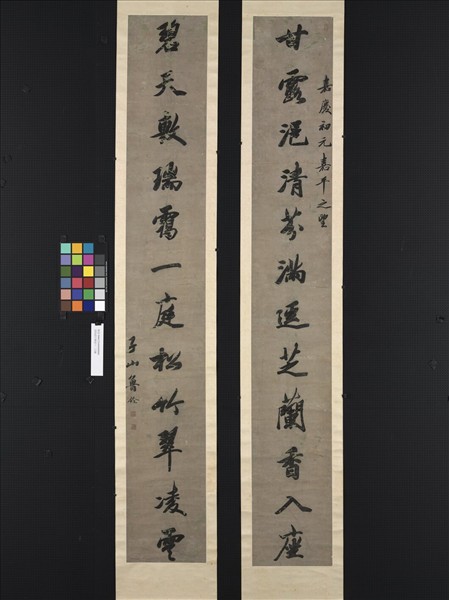 嘉慶初元嘉平之望
甘露浥清芬滿逕芝蘭香入座
碧天敷瑞靄一庭松竹翠凌雲
子山魯銓